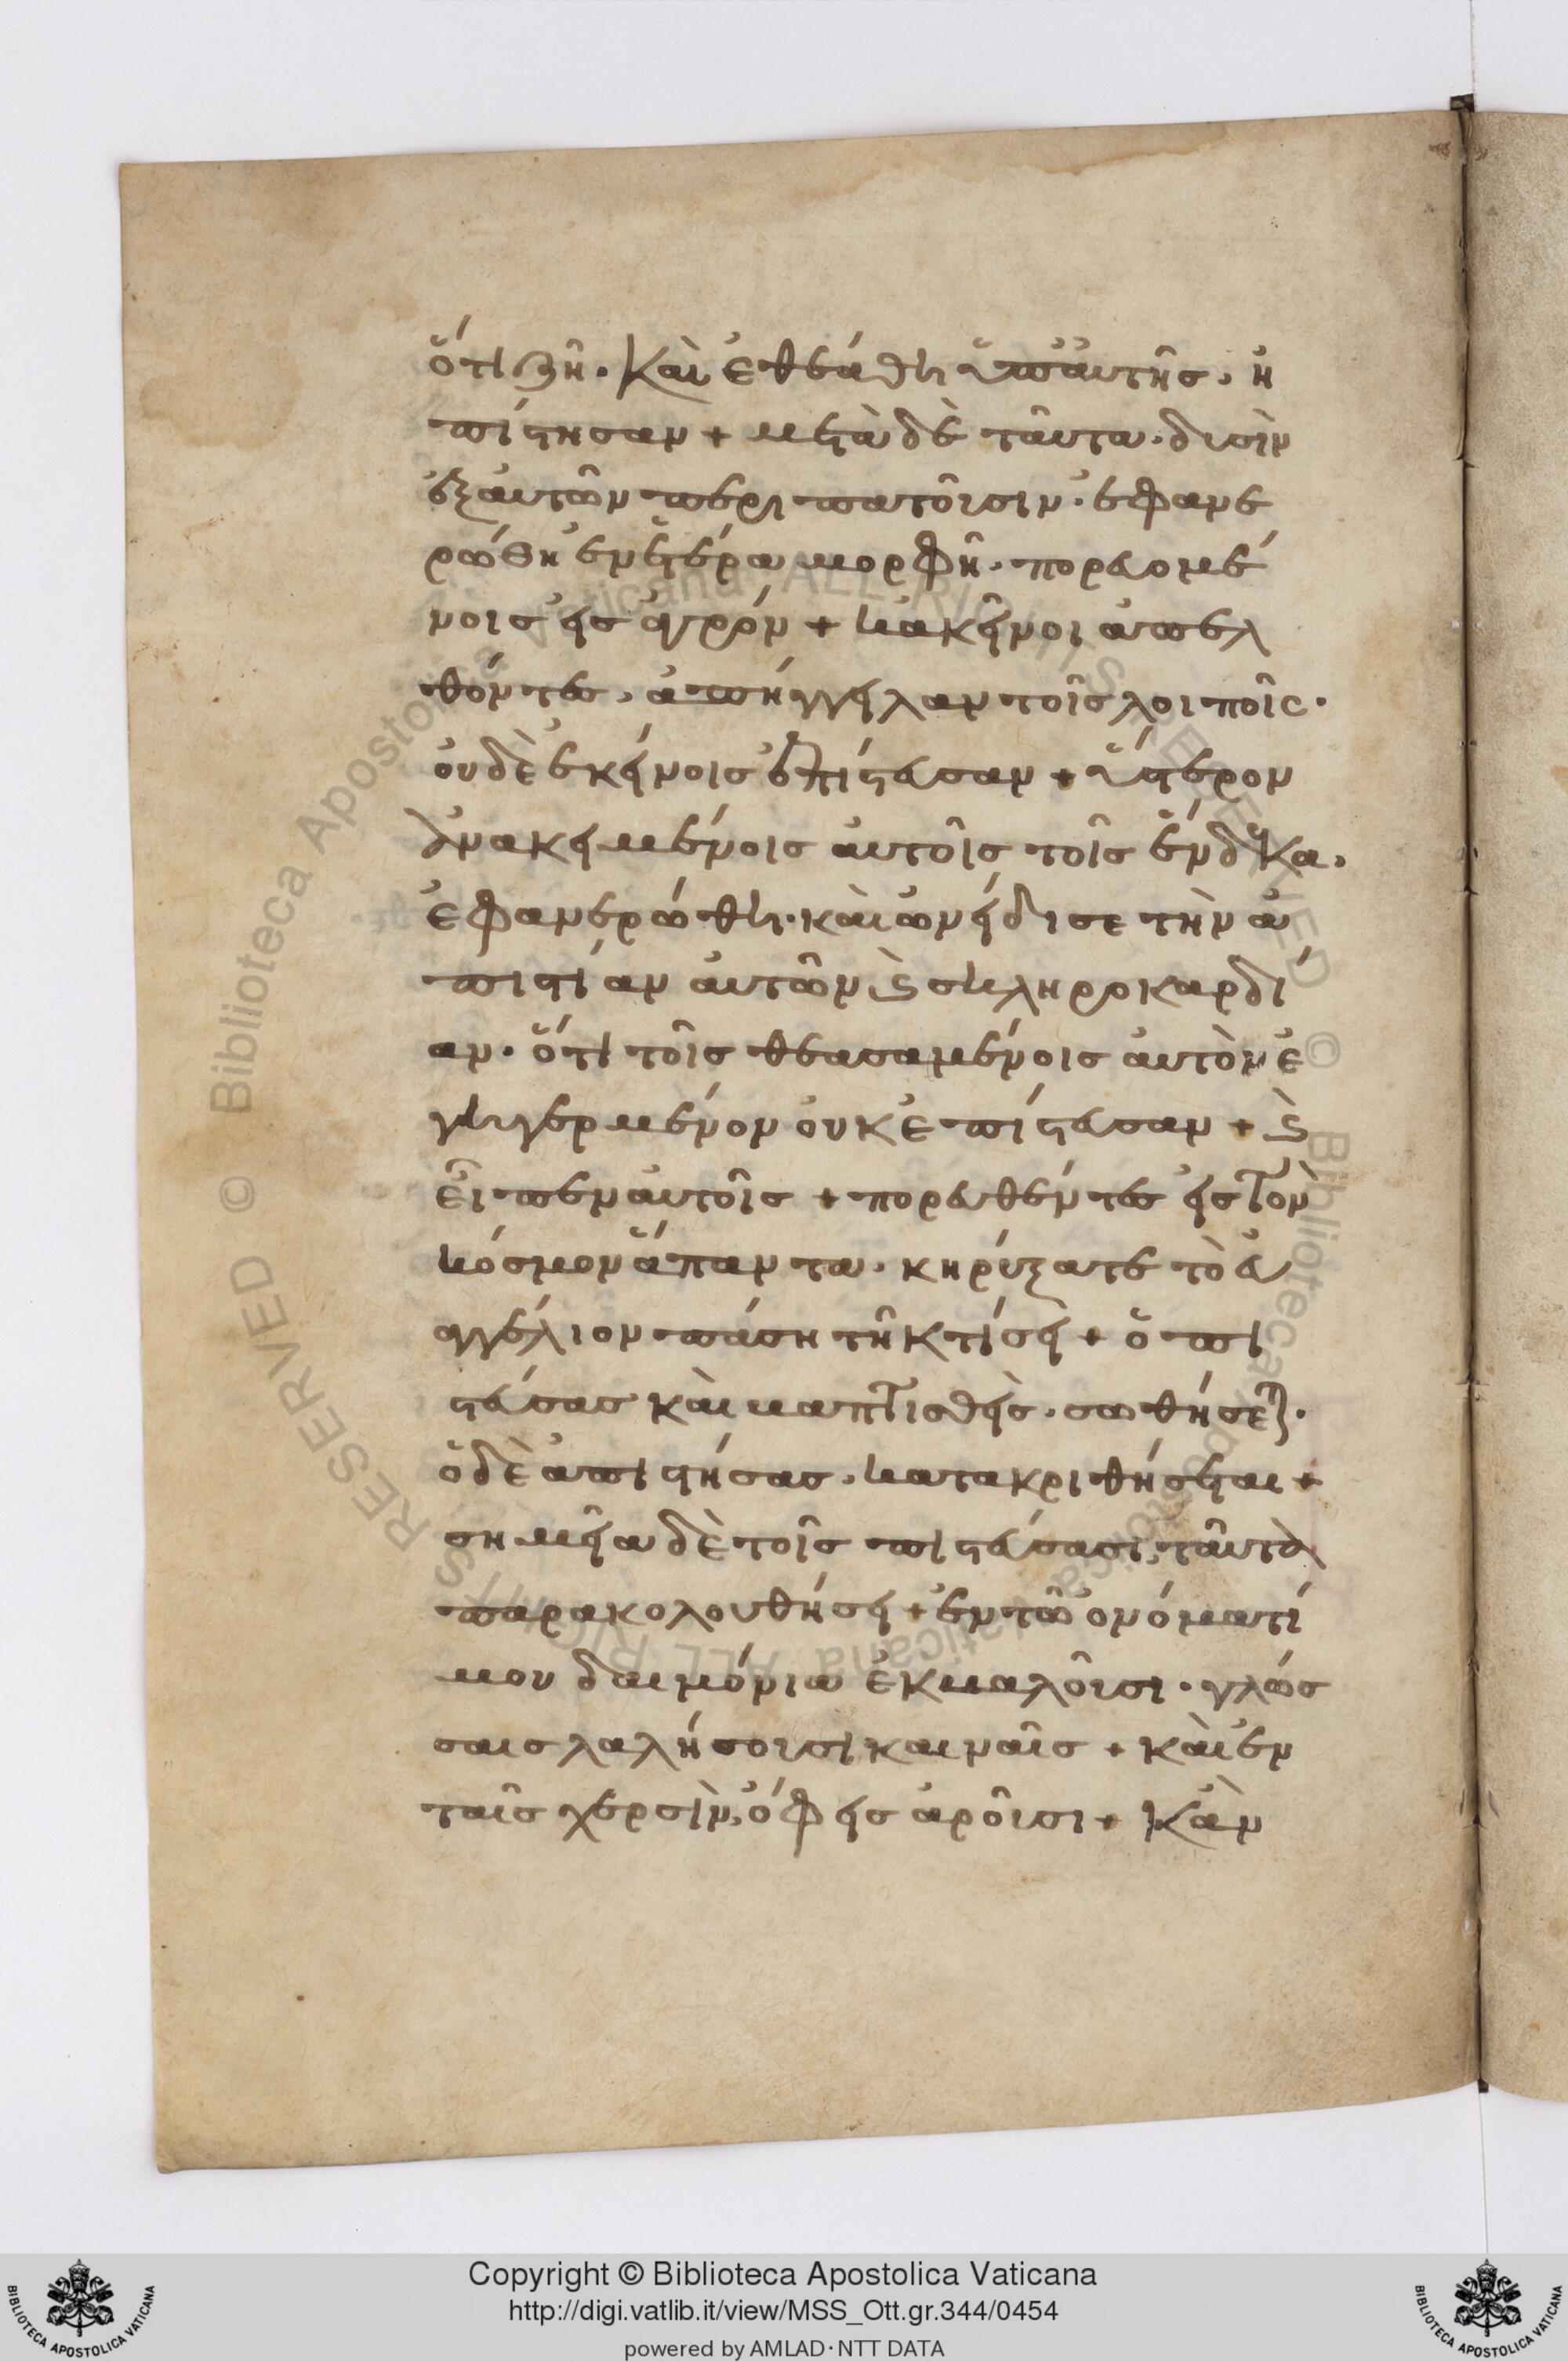 ὅτι ζῆ· καὶ ἐθεάθη ὑπ' αὐτῆς· ἠ
πίστησαν + μετὰ δὲ ταῦτα· δυσὶν
ἐξ αὐτῶν περιπατοῦσιν· ἐφανε
ρώθη ἐν ἑτέρα μορφῆ· πορευομέ
νοις εἰς ἀγρόν + κἀκεῖνοι ἀπελ
θόντες, ἀπήγγειλαν τοῖς λοιποῖς·
οὐδὲ ἐκείνοις ἐπίστευσαν + ὕστερον
ἀνακειμένοις αὐτοῖς τοῖς ἕνδεκα,
ἐφανερώθη· καὶ ὠνείδισε τὴν ἀ
πιστίαν αὐτῶν ϗ σκληροκαρδί
αν· ὅτι τοῖς θεασαμένοις αὐτὸν ἐ
γηγερμένον οὐκ ἐπίστευσαν + ϗ
εἶπεν αὐτοῖς + πορευθέντες εἰς τὸν
κόσμον ἅπαντα· κηρύξατε τὸ εὐ
αγγέλιον πάση τῆ κτίσει + ὁ πι
στεύσας καὶ βαπτισθεὶς· σωθήσεται·
ὁ δὲ ἀπιστήσας· κατακριθήσεται +
σημεῖα δὲ τοῖς πιστεύσασι, ταῦτα
παρακολουθήσει + ἐν τῶ ὀνόματί
μου δαιμόνια ἐκβαλοῦσι· γλώσ
σαις λαλήσουσι καιναῖς + καὶ ἐν
ταῖς χερσὶν, ὄφεις ἀροῦσι + κἂν
Copyright © Biblioteca Apostolica Vaticana
http://digi.vatlib.it/view/MSS_Ott.gr.344/0454
powered by AMLAD·NTT DATA
BIBLIOTECA APOSTOLICA VATICANA
BIBLIOTECA APOSTOLICA VATICANA